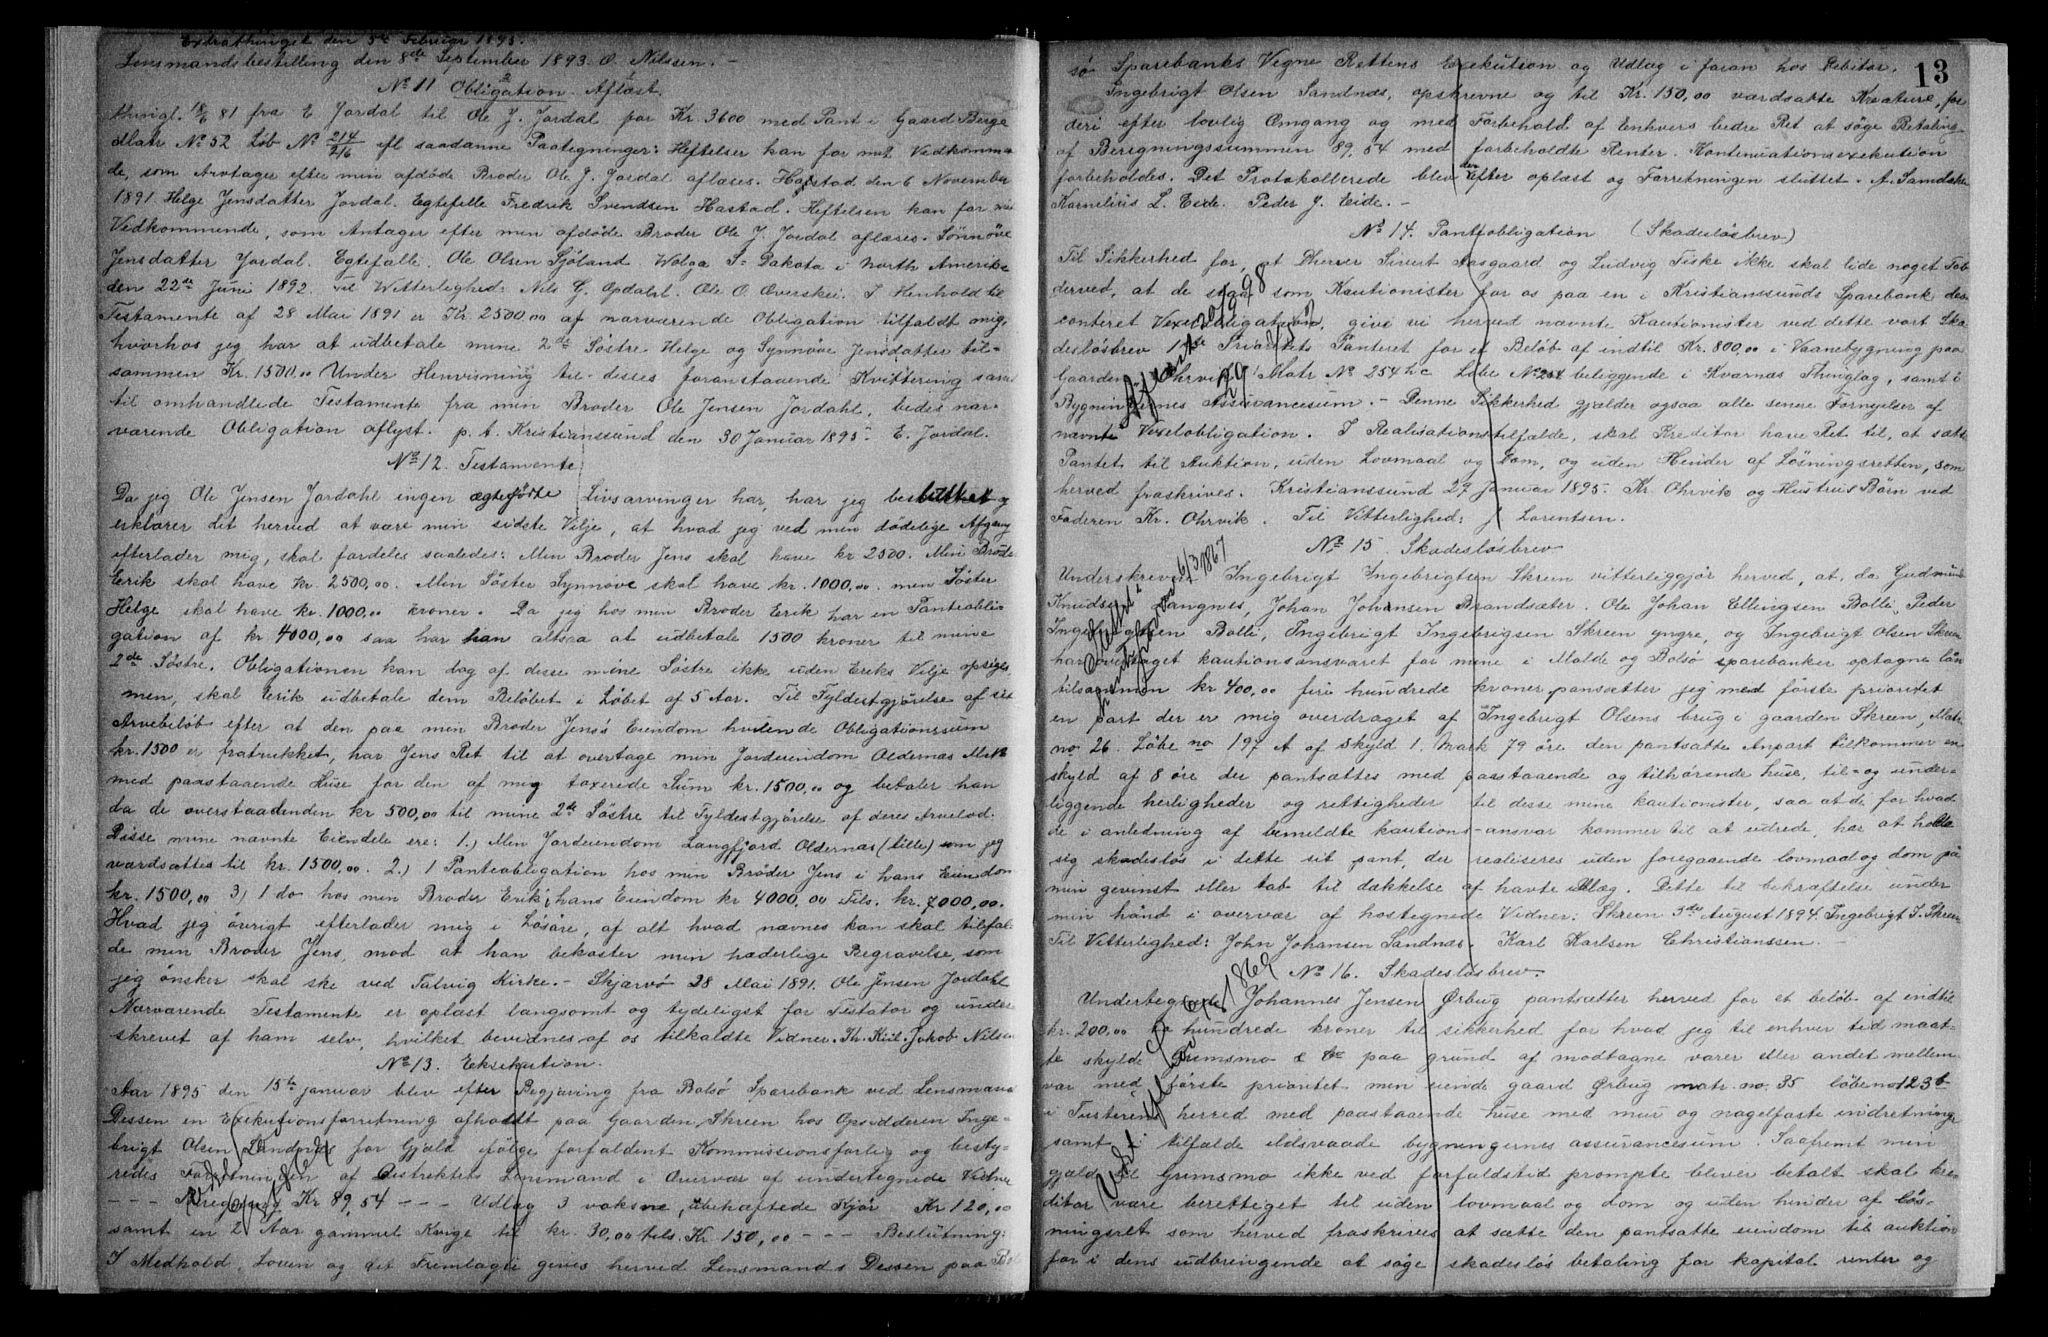 Extrathinget den 5te Februar 1895.
Lensmandsbestilling den 8de September 1893. O. Nilssen. -
No 11 Obligation. Aflæst.
thingl. 18/6 81 fra E Jordal til Ole J. Jordal for Kr. 3600 med Pant i Gaard Berge
Matr No 52 Løb No 214 efl saadanne Paategninger: Heftelser kan for mit Vedkommen
de, som Arvtager efter min afdøde Broder Ole J. Jordal aflæses. Hastad den 6 November
1891 Helge Jensdatter Jordal. Egtefelle Fredrik Svendsen Hastad. Heftelsen kan for mit
Vedkommende, som Antager efter min afdøde Broder Ole J. Jordal aflæses. Sønnøve
Jensdatter Jordal. Egtefälle. Ole Olsen Sjöland Wolga S= Dakota i North Amerika
den 22de Juni 1892. Til Witterlighed: Nils G. Opdahl. Ole O. Överskei. I Henhold til
Testamente af 28 Mai 1891 er Kr 2500.00 af nærværende Obligation tilfaldt mig,
hvorhos jeg har at udbetale mine 2de Søstre Helge og Synnøve Jensdatter til-
sammen Kr. 1500.00 Under Henvisning til disses foranstaaende Kvittering samt
til omhandlede Testamente fra min Broder Ole Jensen Jordahl, bedes nær-
værende Obligation aflyst. p. t. Kristianssund den 30 Januar 1895. E. Jordal.
No 12. Testamente
Da jeg Ole Jensen Jordahl ingen ægtefødte Livsarvinger har, har jeg besluttet og
erklærer det herved at være min sidste Vilje, at hvad jeg ved min dødelige Afgang
efterlader mig, skal fordeles saaledes: Min Broder Jens skal have kr 2500. Min Broder
Eerik skal have kr. 2500,00. Min Søster Synnøve skal have kr. 1000,00. min Søster
Helge skal have kr. 1000,00 kroner. Da jeg hos min Broder Erik har en Panteobli-
gation af kr 4000,00 saa har han altsaa at udbetale 1500 kroner til mine
2de Søstre. Obligationen kan dog af disse mine Søstre ikke uden Eriks Vilje opsiges,
men, skal Erik udbetale dem Beløbet i Løbet af 5 Aar. Til Fyldestgjørelse af sit
Arvebeløb efter at den paa min Broder Jens's Eiendom hvilende Obligationssum
kr. 1500 er fratrukket, har Jens Ret til at overtage min Jordeiendom Oldernæs Matr
med paastaaende Huse for den af mig taxerede Sum kr. 1500,00 og betaler han
da de overstaadenden kr 500,00 til mine 2de Søstre til Fyldestgjørelse af deres Arvelod.
Disse mine nævnte Eiendele ere: 1.) Min Jordeiendom Langfjord Oldernæs (lille) som jeg
værdsættes til kr. 1500,00. 2.) 1 Panteobligation hos min Broder Jens i hans Eiendom
kr. 1500,00 3) 1 do hos min Broder Erik, hans Eiendom kr 4000,00 Tils. kr. 7000,00.
Hvad jeg øvrigt efterlader mig i Løsøre, af alt hvad nævnes kan skal tilfal-
de min Broder Jens, mod at han bekoster min hæderlige Begravelse, som
jeg ønsker skal ske ved Talvig Kirke. - Skjærvø 28 Mai 1891. Ole Jensen Jordahl
Nærværende Testamente er oplæst langsomt og tydeligst for Testator og under
skrevet af ham selv, hvilket bevidnes af os tilkaldte Vidner. Jakob Nilsen
No 13. Eksekution.
Aar 1895 den 15de januar blev efter Begjæring fra Bolsø Sparebank ved Lensmand
Dessen en Exekutionsforretning afholdt paa Gaarden Skreen hos Opsidderen Inge-
brigt Olsen Sandnes for Gjæld ifølge forfaldent Kommissionsforlig og besty-
redes Forretningen af Distriktets Lensmand i Overvær af undertegnede Vidner
- - - Beregning Kr 89,54 - - - Udlæg 3 voksne, ubehæftede Kjør Kr 120,00
samt en 2 Aar gammel Kvige til kr. 30,00 tils. Kr 150,00 - - - Beslutning:
I Medhold Loven og det Fremlagte gives herved Lensmand Dessen paa Bol
13
sø Sparebanks Vegne Rettens Exekution og Udlæg i foran hos Debitor,
Ingebrigt Olsen Sandnæs, opskrevne og til Kr. 150,00 værdsatte Kreature, for
deri efter lovlig Omgang og med Forbehold af Enhvers bedre Ret at søge Betaling
af Beregningssummen 89,54 med forbeholdte Renter. Kontinuationsexekution
forbeholdes. Det Protokollerede blev derefter oplæst og Forretningen sluttet.
Kornelius L. Eide. Peder J. Eide. -
No 14. Panteobligation (Skadesløsbrev)
Til Sikkerhed for, at Dherrer Sivert Aasgaard og Ludvig Fiske ikke skal lide noget Tab
derved, at de staar som Kautionister for os paa en i Kristianssunds Sparebank dis-
conteret Vexelobligation, give vi herved nævnte Kautionister ved dette vort Ska-
desløsbrev 1ste Prioritets Panteret for et Beløb af indtil Kr. 800,00 i Vaanebygning paa
Gaarden Ohrvik Matr No 254 Løbe No beliggende i Kværnæs Thinglag, samt i
Bygningernes Assurancesum. - Denne Sikkerhed gjælder ogsaa alle senere Fornyelser af
nævnte Vexelobligation. I Realisationstilfælde, skal Kreditor have Ret til, at sætte
Pantet til Auktion, uden Lovmaal og Dom, og uden Hinder af Løsningsretten, som
herved fraskrives. Kristianssund 29 Januar 1895. Kr. Ohrvik og Hustrus Børn ved
Faderen Kr. Ohrvik. Til Vitterlighed: J Lorentsen.
No 15. Skadesløsbrev
Underskrevne Ingebrigt Ingebrigtsen Skreen vitterliggjør herved, at, da Gudmund
Knudsen Vangnes, Johan Johansen Brandsæter. Ole Johan Ellingsen Bolli, Peder
Ingebrigtsen Bolli, Ingebrigt Ingebrigsen Skreen yngre, og Ingebrigt Olsen Skreen
har overtaget kautionsansvaret for mine i Molde og Bolsø sparebanker optagne lån
tilsammen kr 400,00 fire hundrede kroner pansætter jeg med første prioritet
en part der er mig overdraget af Ingebrigt Olsens brug i gaarden Skreen, Matr.
no 26. Løbe no 197 A af Skyld 1. Mark 79 øre den pantsatte Anpart tilkommer en
skyld af 8 øre der pantsættes med paastaaende og tilhørende huse, til- og under-
liggende herligheder og rettigheder til disse mine kautionister, saa at de for hvad
de i anledning af bemeldte kautions-ansvar kommer til at udrede, har at holde
sig skadesløs i dette sit pant, der realiseres uden foregaaende lovmaal og dom på
min gevinst eller tab til dækkelse af havte udlæg. Dette til bekræftelse under
min hånd i overvær af hostegnede Vidner: Skreen 3die August 1894. Ingebrigt I. Skreen
Til Vitterlighed: John Johansen Sandnæs. Karl Karlsen Christianssen. -
No 16. Skadesløsbrev.
Undertegnede Johannes Jensen Ørbug pantsætter herved for et beløb af indtil
kr. 200,00 to hundrede kroner til sikkerhed for hvad jeg til enhver tid maat-
te skylde Grimsmo & Co paa grund af modtagne varer eller andet mellem-
vær med første prioritet min eiende gaard Ørbug matr. no. 35 løbeno 123b
i Tusteren herred med paastaaende huse med mur og nagelfaste indretninge
samt i tilfælde ildsvaade bygningernes assurancesum. Saafremt min
gjæld til Grimsmo ikke ved forfaldstid prompte bliver betalt skal kre-
ditor være berettiget til uden lovmaal og dom og uden hinder af løs-
ningsret som herved fraskrives at sætte den pantsatte eiendom til auktion
for i dens udbringende at søge skadesløs betaling for kapital renter og